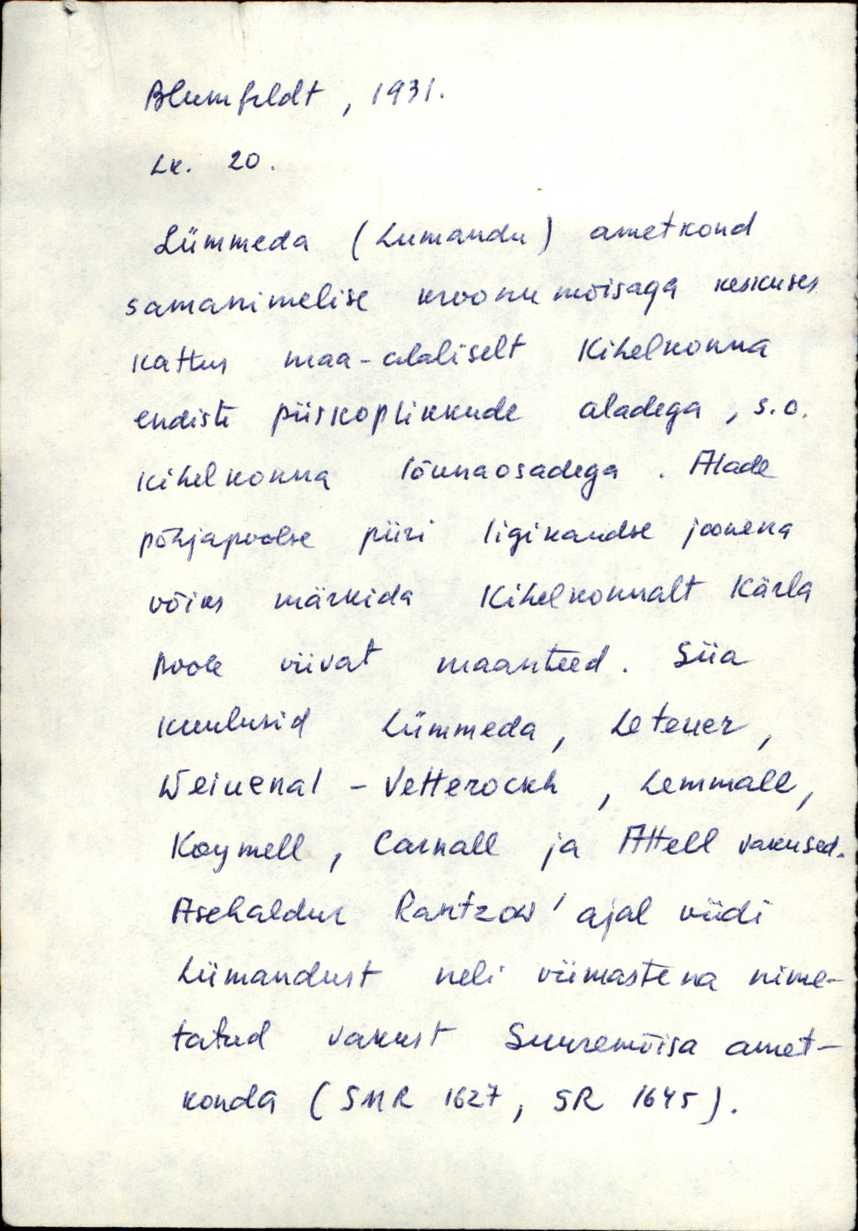 Blumfeldt, 1931.
Lk. 20.
Lümmeda (Lumandu) ametkond
samanimelise kroonu mõisaga keskuses
kattus maa-alaliselt Kihelkonna
endiste piiskoplikkude aladega, s.o.
kihelkonna lõunaosadega. Alade
põhjapoolse piiri ligikaudse joonena
võiks märkida Kihelkonnalt Kärla
poole viivat maanteed. Siia
kuulusid Lümmeda, Leteuer,
Weiuenal - Vetterockh, Lemmall,
Koymell, Carnall ja Attell vakused.
Asehaldur Rantzow' ajal viidi
Lümandust neli viimastena nime-
tatud vakust Suuremõisa amet-
konda (SMR 1627, SR 1645).